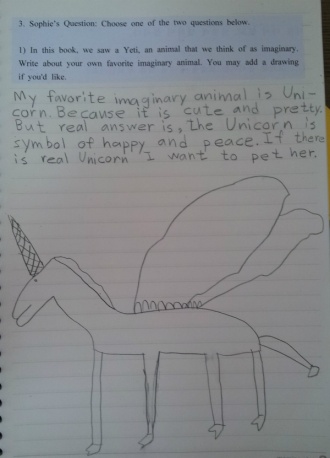 3. Sophie's Question: Choose one of the two questions below.
1) In this book, we saw a Yeti, an animal that we think of as imaginary.
Write about your own favorite imaginary animal. You may add a drawing
if you'd like.
My favorite imaginary animal is Uni-
corn. Because it is cute and pretty.
But real answer is, the Unicorn is
symbol of happy and peace. If there
is real Unicorn I want to pet her.